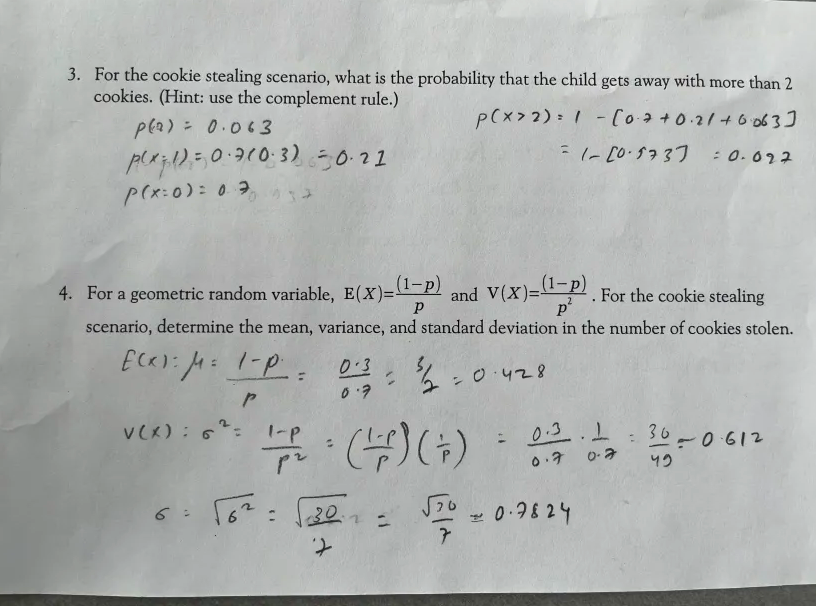 3. For the cookie stealing scenario, what is the probability that the child gets away with more than 2
cookies. (Hint: use the complement rule.)
p(2) = 0.063
p(x=1) = 0.7(0.3) = 0.21
p(x=0) = 0.7
p(x>2) = 1 - [0.7 + 0.21 + 0.063]
= 1 - [0.973] = 0.027
4. For a geometric random variable, E(X)=(1−p)/p and V(X)=(1−p)/p². For the cookie stealing
scenario, determine the mean, variance, and standard deviation in the number of cookies stolen.
E(x): μ = (1-p)/p = 0.3/0.7 = 3/7 = 0.428
V(x): σ² = (1-p)/p² = ((1-p)/p)(1/p) = 0.3/0.7 · 1/0.7 = 30/49 = 0.612
σ = √σ² = √30/7 = √30/7 ≈ 0.7824